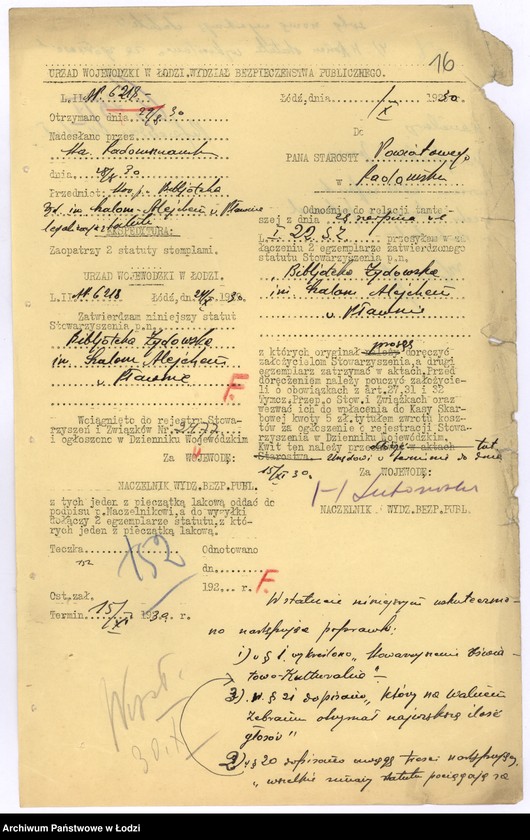 16
URZĄD WOJEWÓDZKI W ŁODZI. WYDZIAŁ BEZPIECZEŃSTWA PUBLICZNEGO.
L.II. AP. 6218
Otrzymano dnia 29/8 30
Nadesłano przez
Sta. Radomsmank
dnia 28/8 30
Przedmiot: Biblioteka
Żyd. im. Szalom Alejchem w Pławnie
EKSPEDITURA:
Zaopatrzy 2 statuty stemplami.
URZĄD WOJEWÓDZKI W ŁODZI.
L.II. AP. 6218 Łódź, dn. 24/IX 1930
Zatwierdzam niniejszy statut
Stowarzyszenia p.n.
Bibljoteka Żydowska
im Szalom Alejchem
w Pławnie
F.
Wciągnięto do rejestru Stowa-
rzyszeń i Związków Nr. 2472
i ogłoszono w Dzienniku Wojewódzkim
Za WOJEWODĘ:
NACZELNIK WYDZ.BEZP.PUBL.
z tych jeden z pieczątką lakową oddać do
podpisu p.Naczelnikowi, a do wysyłki
dołączy 2 egzemplarze statutu, z któ-
rych jeden z pieczątką lakową.
Teczka 152 Odnotowano
152
dn.
192 r. F.
Ost.zał.
Termin 15/XI 1930 r.
Wysł.
30.IX
Łódź, dnia /IX 1930.
Do
PANA STAROSTY Powiatowego
w Radomsku
Odnośnie do relacji tamtej-
szej z dnia 28 sierpnia br
L. I. 22 52 przesyłam w za-
łączeniu 2 egzemplarze zatwierdzonego
statutu Stowarzyszenia p.n.
"Bibljoteka Żydowska
im Szalom Alejchem
w Pławnie
z których oryginał należy proszę doręczyć
założycielom Stowarzyszenia, a drugi
egzemplarz zatrzymać w aktach. Przed
doręczeniem należy pouczyć założycie-
li o obowiązkach z art.27,31 i 32
Tymcz.Przep.o Stow.i Związkach oraz
wezwać ich do wpłacenia do Kasy Skar-
bowej kwoty 5 zł. tytułem zwrotu kosz-
tów za ogłoszenie o rejestracji Stowa-
rzyszenia w Dzienniku Wojewódzkim.
Kwit ten należy przechować w aktach tut.
Starostwa. Urzędowi w terminie do dnia
15/XI 30.
Za WOJEWODĘ:
NACZELNIK WYDZ.BEZP.PUBL.
W statucie niniejszym uskutecznio-
no następujące poprawki:
1) w § 1. wykreślono "Stowarzyszenie Oświa-
towo-Kulturalne"
3) w § 21 dopisano "który na walnem
zebraniu otrzymał największą ilość
głosów"
2) w § 20 dopisano uwagę treści następującej
"wszelkie zmiany statutu pociągają za
Archiwum Państwowe w Łodzi